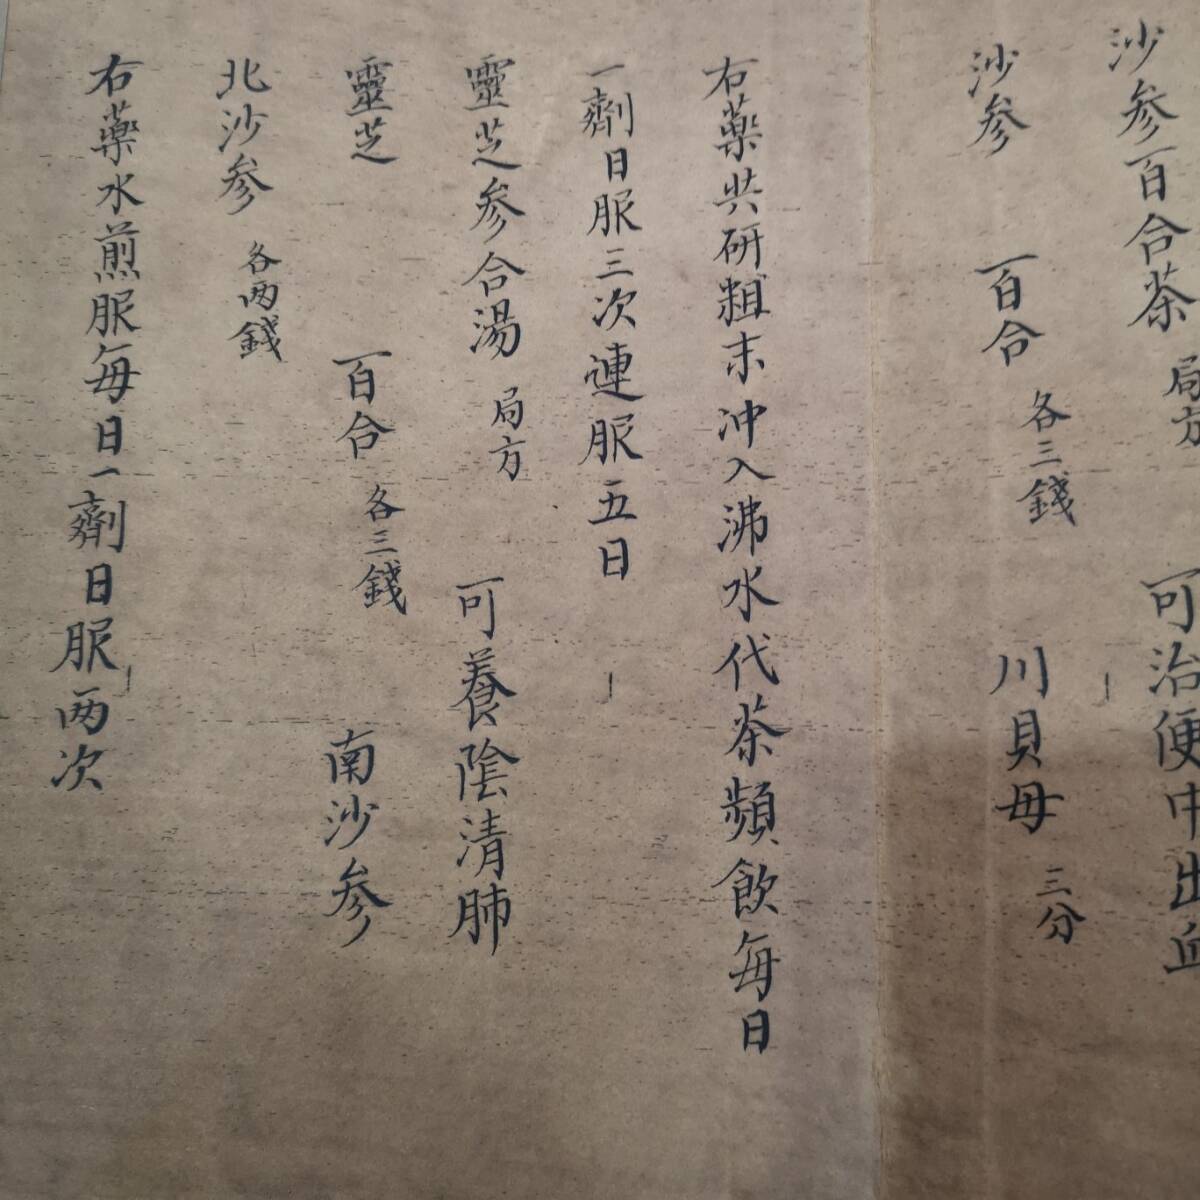 沙参百合茶 局方 可治便中出血
沙参 百合 各三錢 川貝母 三分
右藥共研粗末沖入沸水代茶頻飲每日
一劑日服三次連服五日
靈芝参合湯 局方 可養陰清肺
靈芝 百合 各三錢 南沙参
北沙参 各两錢
右藥水煎服每日一劑日服两次